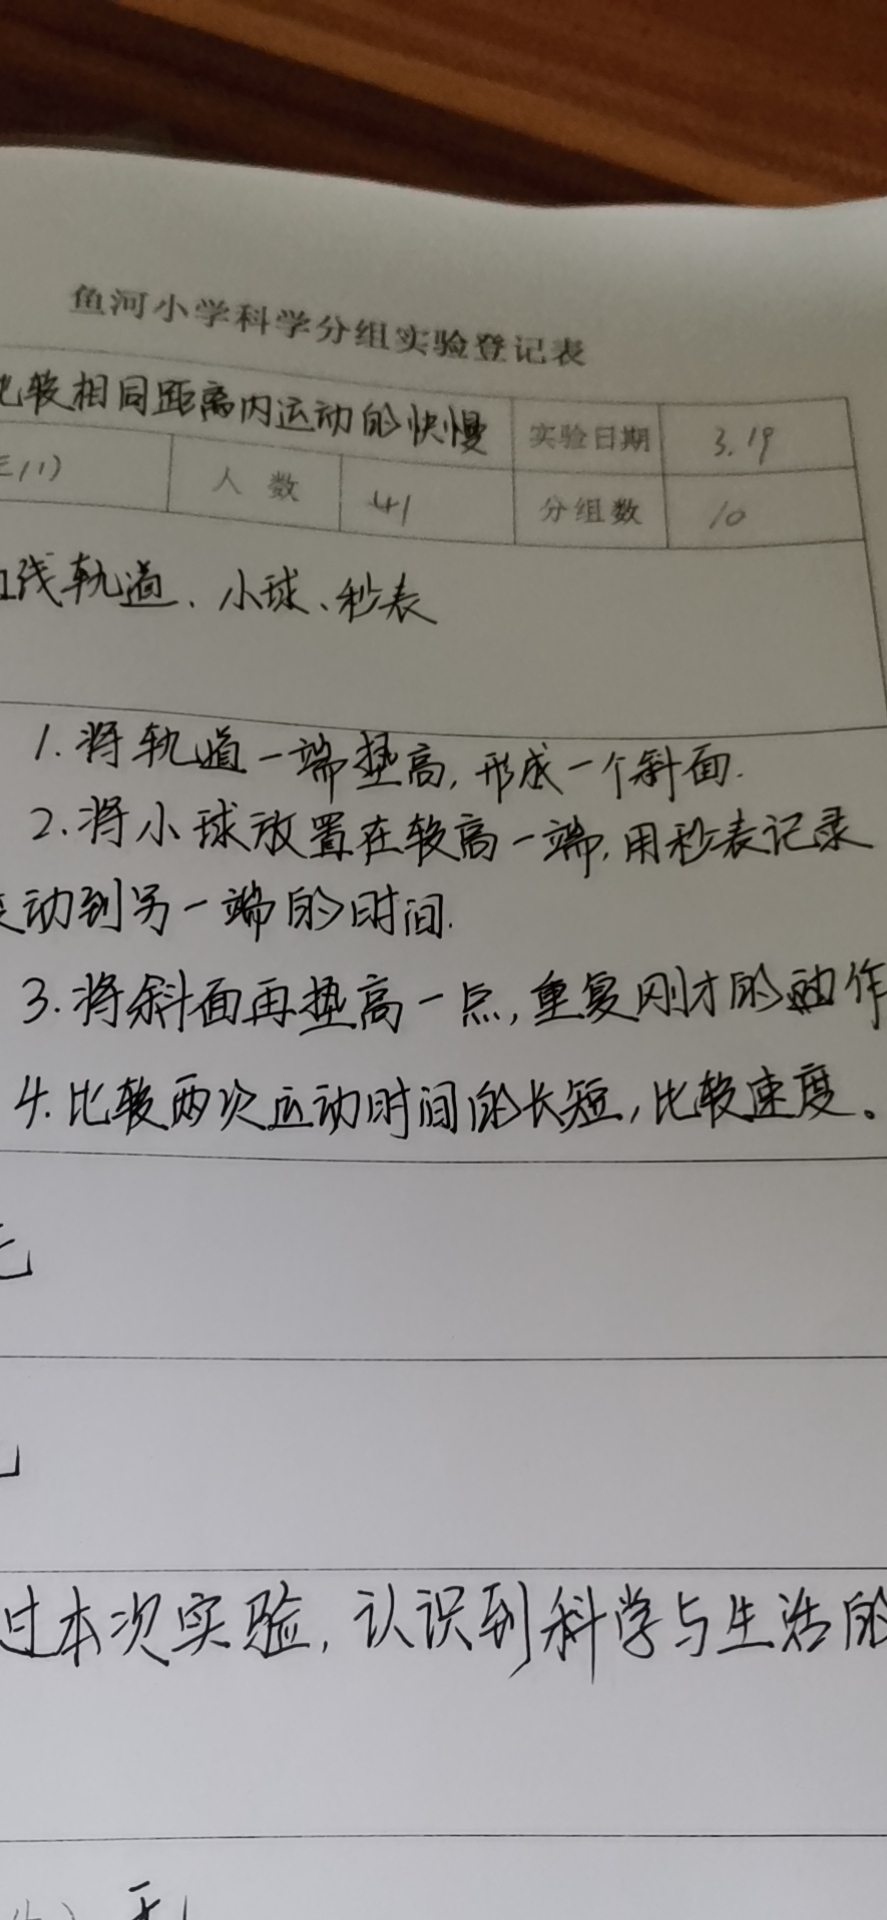 鱼河小学科学分组实验登记表
比较相同距离内运动的快慢 实验日期 3.19
三(1) 人数 41 分组数 10
线轨道、小球、秒表
1.将轨道一端垫高,形成一个斜面.
2.将小球放置在较高一端,用秒表记录
动到另一端的时间.
3.将斜面再垫高一点,重复刚才的动作
4.比较两次运动时间的长短,比较速度。
无
过本次实验,认识到科学与生活的
无